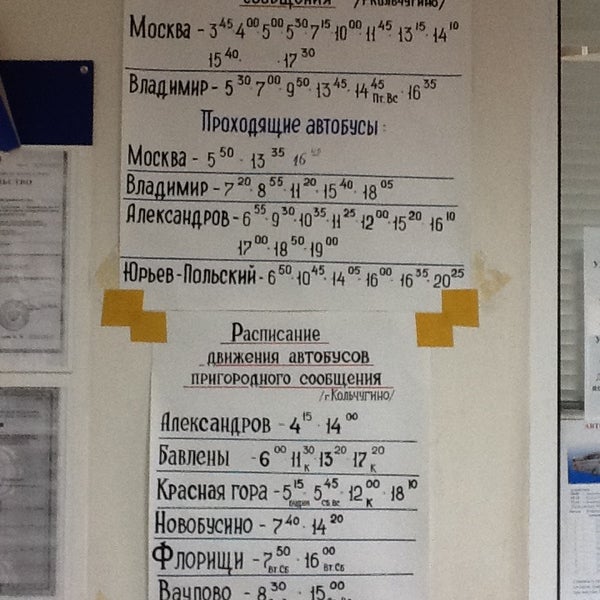 сообщения /г.Кольчугино/
Москва - 3⁴⁵ 4⁰⁰ 5⁰⁰ 5³⁰ 7¹⁵ 10⁰⁰ 11⁴⁵ 13¹⁵ 14¹⁰
15⁴⁰ 17³⁰
Владимир - 5³⁰ 7⁰⁰ 9⁵⁰ 13⁴⁵ 14⁴⁵ Пт.Вс 16³⁵
Проходящие автобусы:
Москва - 5⁵⁰ 13³⁵ 16
Владимир - 7²⁰ 8⁵⁵ 11²⁰ 15⁴⁰ 18⁰⁵
Александров - 6⁵⁵ 9³⁰ 10³⁵ 11²⁵ 12⁰⁰ 15²⁰ 16¹⁰
17⁰⁰ 18⁵⁰ 19⁰⁰
Юрьев-Польский - 6⁵⁰ 10⁴⁵ 14⁰⁵ 16⁰⁰ 16³⁵ 20²⁵
Расписание
движения автобусов
пригородного сообщения
/г.Кольчугино/
Александров - 4¹⁵ 14⁰⁰
Бавлены - 6⁰⁰ 11³⁰ К 13²⁰ 17²⁰ К
Красная гора - 5¹⁵ 5⁴⁵ сб.вс 12⁰⁰ К 18¹⁰
Новобусино - 7⁴⁰ 14²⁰
Флорищи - 7⁵⁰ Вт.Сб 16⁰⁰ Вт.Сб
Ваулово - 8³⁰ 15⁰⁰